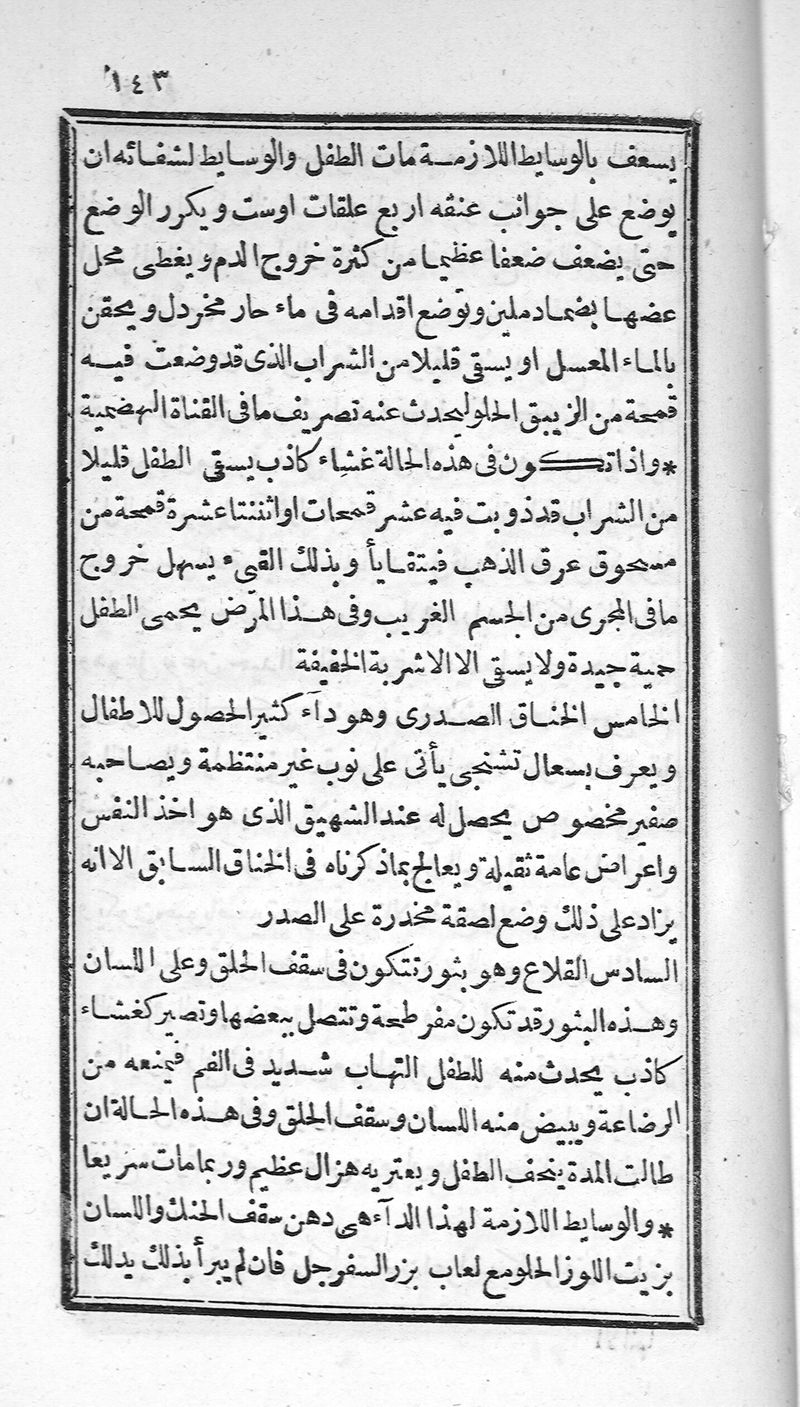 ١٤٣
يسعف بالوسايط اللازمة مات الطفل والوسايط لشفائه ان
يوضع على جوانب عنقه اربع علقات اوست ويكرر الوضع
حتى يضعف ضعفا عظيما من كثرة خروج الدم ويغطى محل
عضها بضماد ملين وتوضع اقدامه فى ماء حار مخردل ويحقن
بالماء المعسل او يسقى قليلا من الشراب الذى قد وضعت فيه
قمحة من الزيبق الحلو ليحدث عنه تصريف ما فى القناة الهضمية
* واذا تكون فى هذه الحالة غشاء كاذب يسقى الطفل قليلا
من الشراب قد ذوبت فيه عشر قمعات او اثنتا عشرة قمحة من
مسحوق عرق الذهب فيتقايأ وبذلك القيء يسهل خروج
ما فى المجرى من الجسم الغريب وفى هذا المرض يحمى الطفل
حمية جيدة ولا يسقى الا الاشربة الخفيفة
الخامس الخناق الصدرى وهو دآء كثير الحصول للاطفال
ويعرف بسعال تشنجى يأتى على نوب غير منتظمة ويصاحبه
صفير مخصوص يحصل له عند الشهيق الذى هو اخذ النفس
واعراض عامة ثقيلة ويعالج بما ذكرناه فى الخناق السابق الا انه
يزاد على ذلك وضع لصقة مخدرة على الصدر
السادس القلاع وهو بثور تتكون فى سقف الحلق وعلى اللسان
وهذه البثور قد تكون مفرطحة وتتصل ببعضها وتصير كغشاء
كاذب يحدث منه للطفل التهاب شديد فى الفم فيمنعه من
الرضاعة ويبيض منه اللسان وسقف الحلق وفى هذه الحالة ان
طالت المدة ينحف الطفل ويعتريه هزال عظيم وربما مات سريعا
* والوسايط اللازمة لهذا الدآء هى دهن سقف الحنك واللسان
بزيت اللوز الحلو مع لعاب بزر السفرجل فان لم يبرأ بذلك يدلك